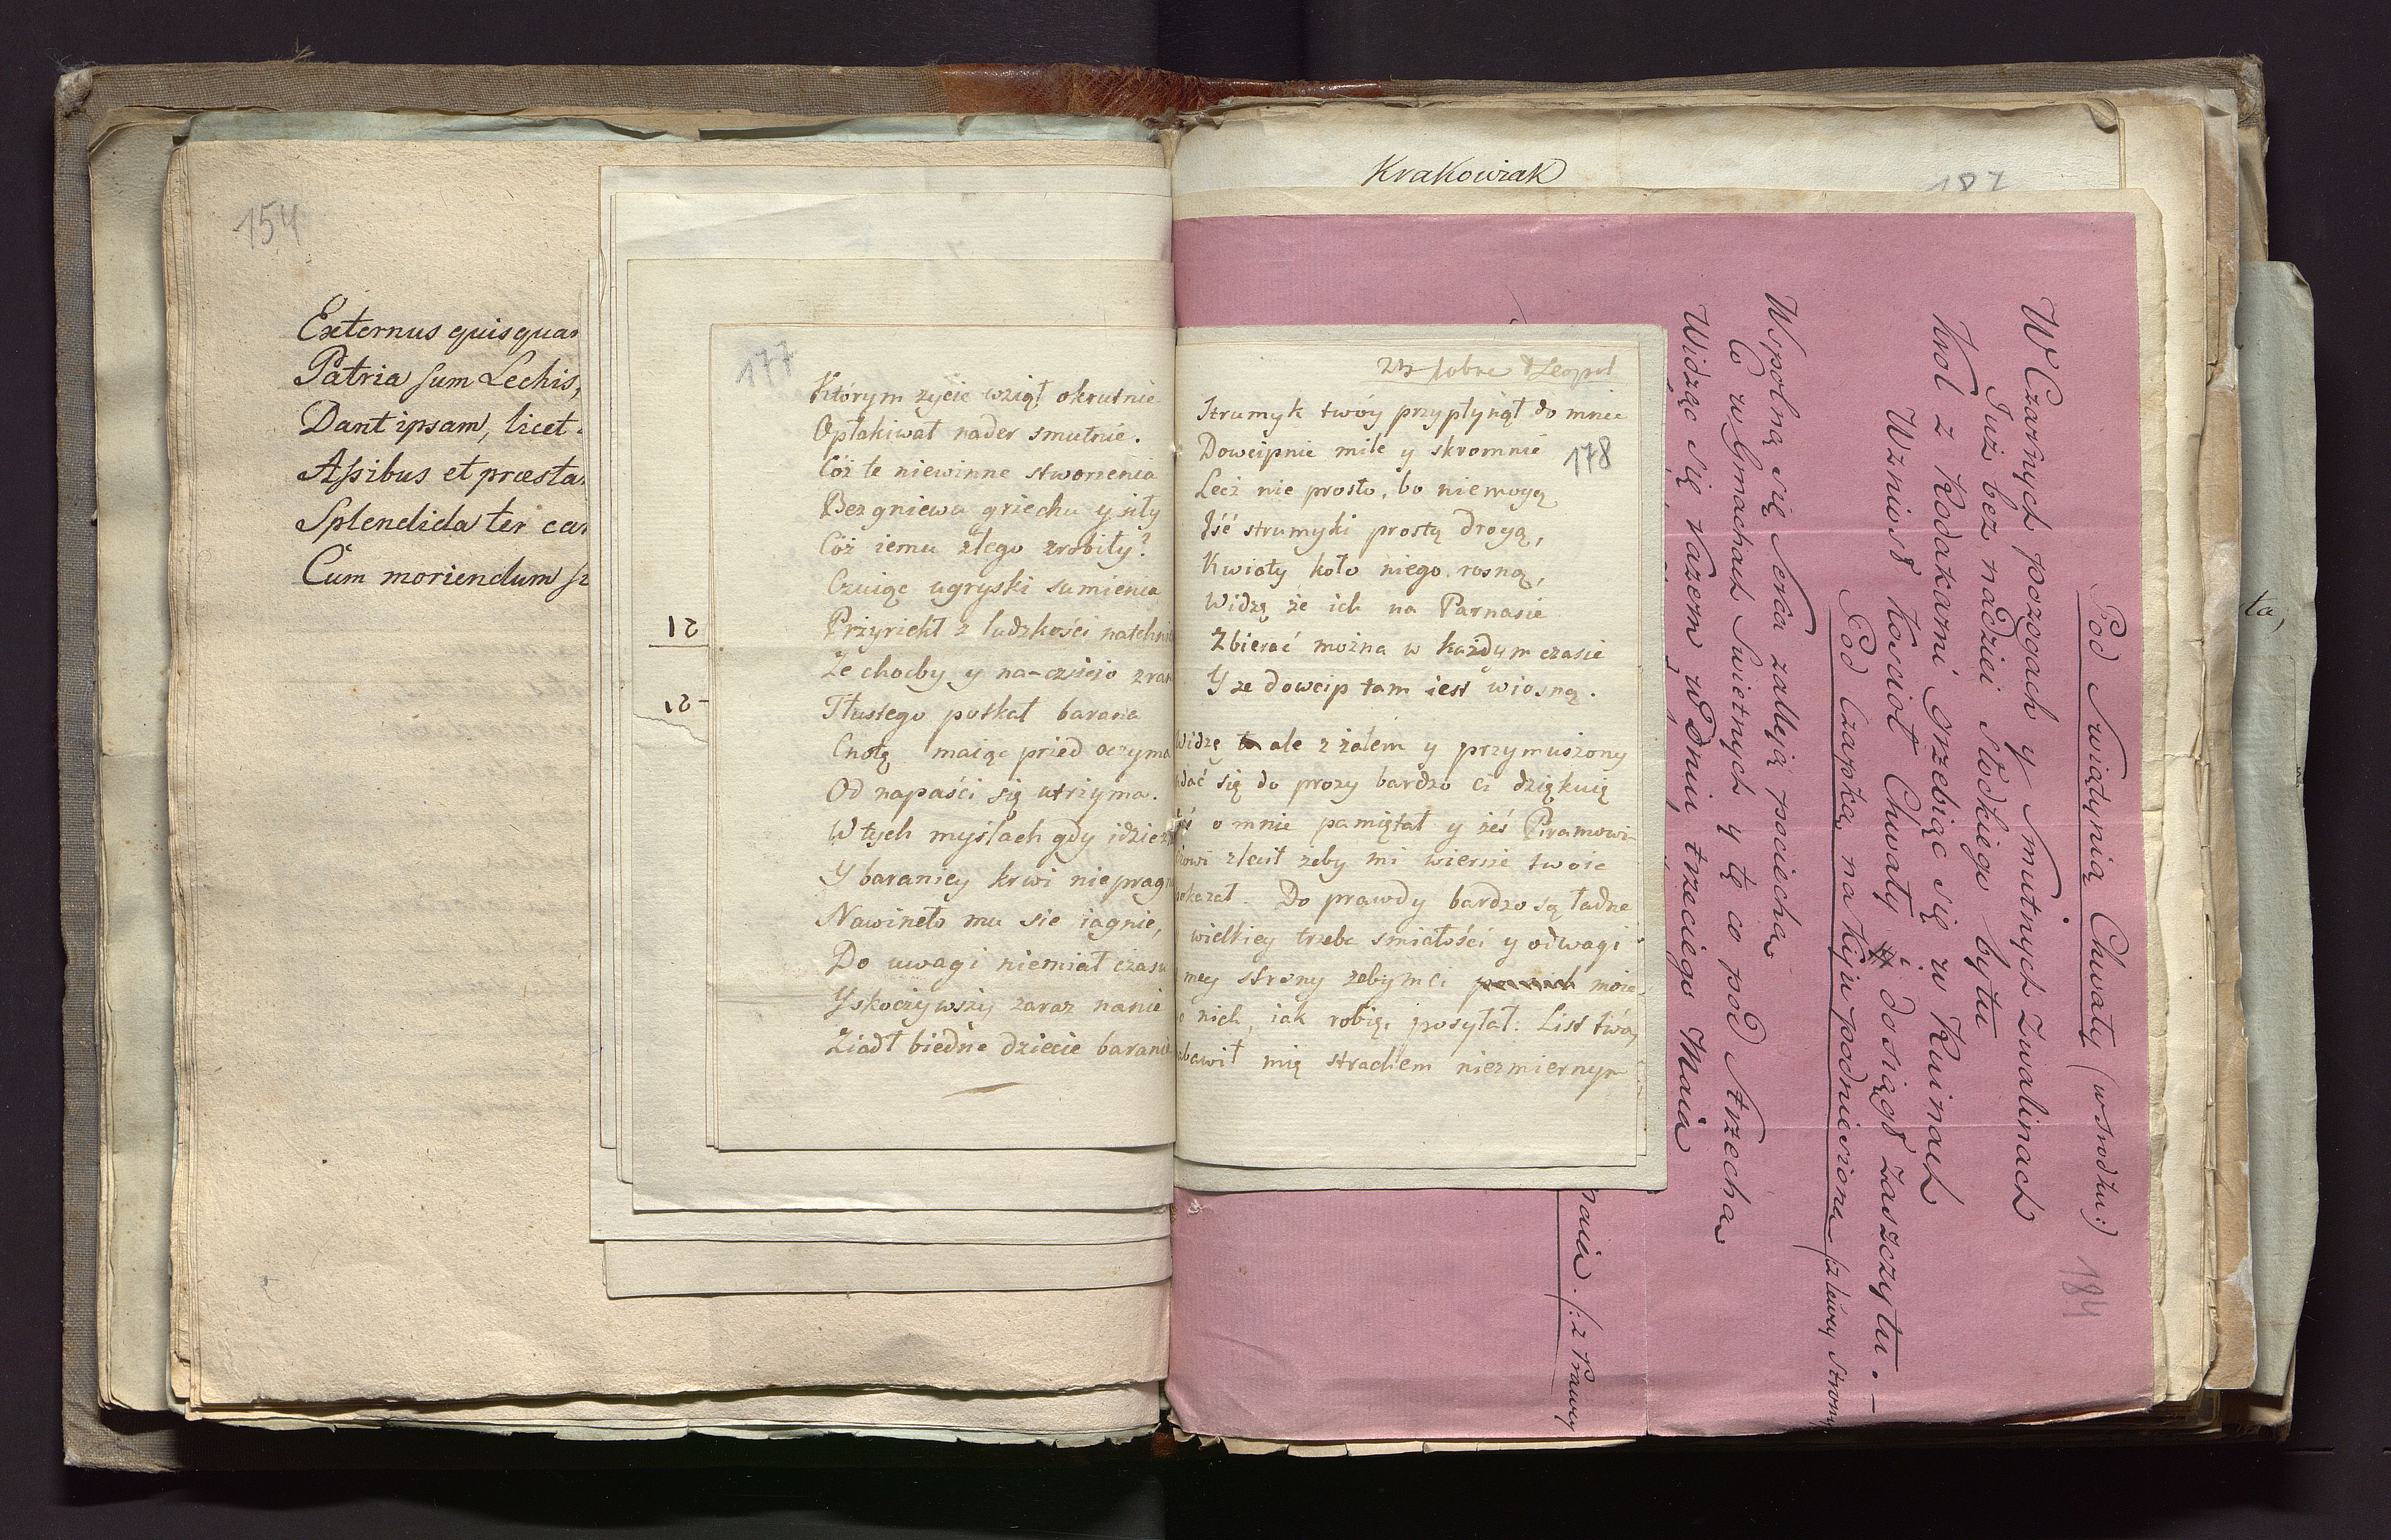 154
Externus quisqua
Patria sum Lechis,
Dant ipsam, licet
Assibus et præsta
Splendida ter ca
Cum moriendum
12
12
177
Którym życie wziął okrutnie
Opłakiwał nader smutnie.
Cóż te niewinne stworzenia
Bez gniewu griechu y siły
Cóż iemu złego zrobiły?
Czuiąc ugryski sumienia
Przyriekł z ludzkości natchni
Ze choćby y na-czcićzo zran
Tłustego potkał barana
Cnotę maiąc pried oczyma
Od napaści się utrzyma.
W tych myślach gdy idzie
Y baraniey krwi niepragn
Nawineło mu sie iagnie,
Do uwagi niemiał czasu
Y skoczywszy zaraz nanie
Ziadł biedne dziecie baranie
Strumyk twóy przypłynął do mnie
Dowcipnie mile y skromnie
178
Lecz nie prosto, bo niemogą
Iść strumyki prostą drogą,
Kwiaty koło niego rosną,
Widzę że ich na Parnasie
Zbierać można w każdym czasie
Y ze dowcip tam iest wiosną.
Widzę ale z żalem y przymuszony
udać się do prozy bardzo ci dziękuię
żeś o mnie pamiętał y żeś Piramowi-
czowi zlecił zeby mi wiersze twoie
pokazał. Do prawdy bardzo są ładne
wielkiey trzeba smiałości y odwagi
mey strony zebym ci moie
nich, iak robię, posyłał: List twóy
nabawił mię strachem niezmiernym
Krakowiak
187
184
Pod Swiątynią Chwały (w srodku:)
W Czarnych pozogach y Smutnych Zwalinach
Już bez nadziei Słodkiego bytu
Krol z Rodakami grzebiąc się w Ruinach
Wzniosł Kościoł Chwały i dosiągł zaszczytu. —
Pod Czapką na kiju podniesioną (z lewey Strony
Wspolną się Serca zalleją pociechą
Co w Gmachach Swietnych y tę co pod Strzechą
Widząc się razem w Dniu trzeciego Maia
(: z Prawey
ta,